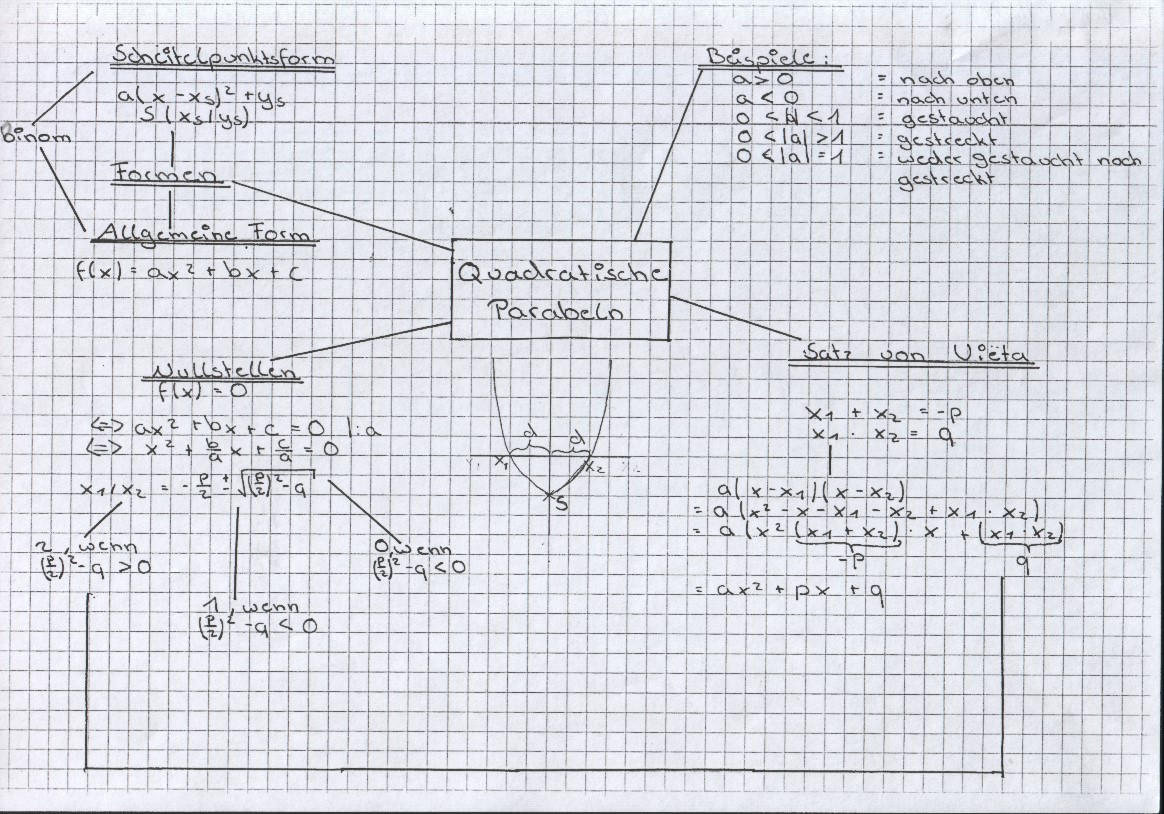 Scheitelpunktsform
a(x - xs)² + ys
S (xs/ys)
Binom
Formen
Allgemeine Form
f(x) = ax² + bx + c
Beispiele:
a > 0 = nach oben
a < 0 = nach unten
0 < |a| < 1 = gestaucht
0 < |a| > 1 = gestreckt
0 < |a| = 1 = weder gestaucht noch
gestreckt
Quadratische
Parabeln
Nullstellen
f(x) = 0
<=> ax² + bx + c = 0 |:a
<=> x² + b/a x + c/a = 0
x1/x2 = - p/2 ± √((p/2)² - q)
2, wenn
(p/2)² - q > 0
1, wenn
(p/2)² - q < 0
0, wenn
(p/2)² - q < 0
d d
x1 x2
S
Satz von Viëta
x1 + x2 = -p
x1 · x2 = q
a(x-x1)(x-x2)
= a (x² - x - x1 - x2 + x1 · x2)
= a (x² (x1 + x2) · x + (x1 · x2)
-p q
= ax² + px + q